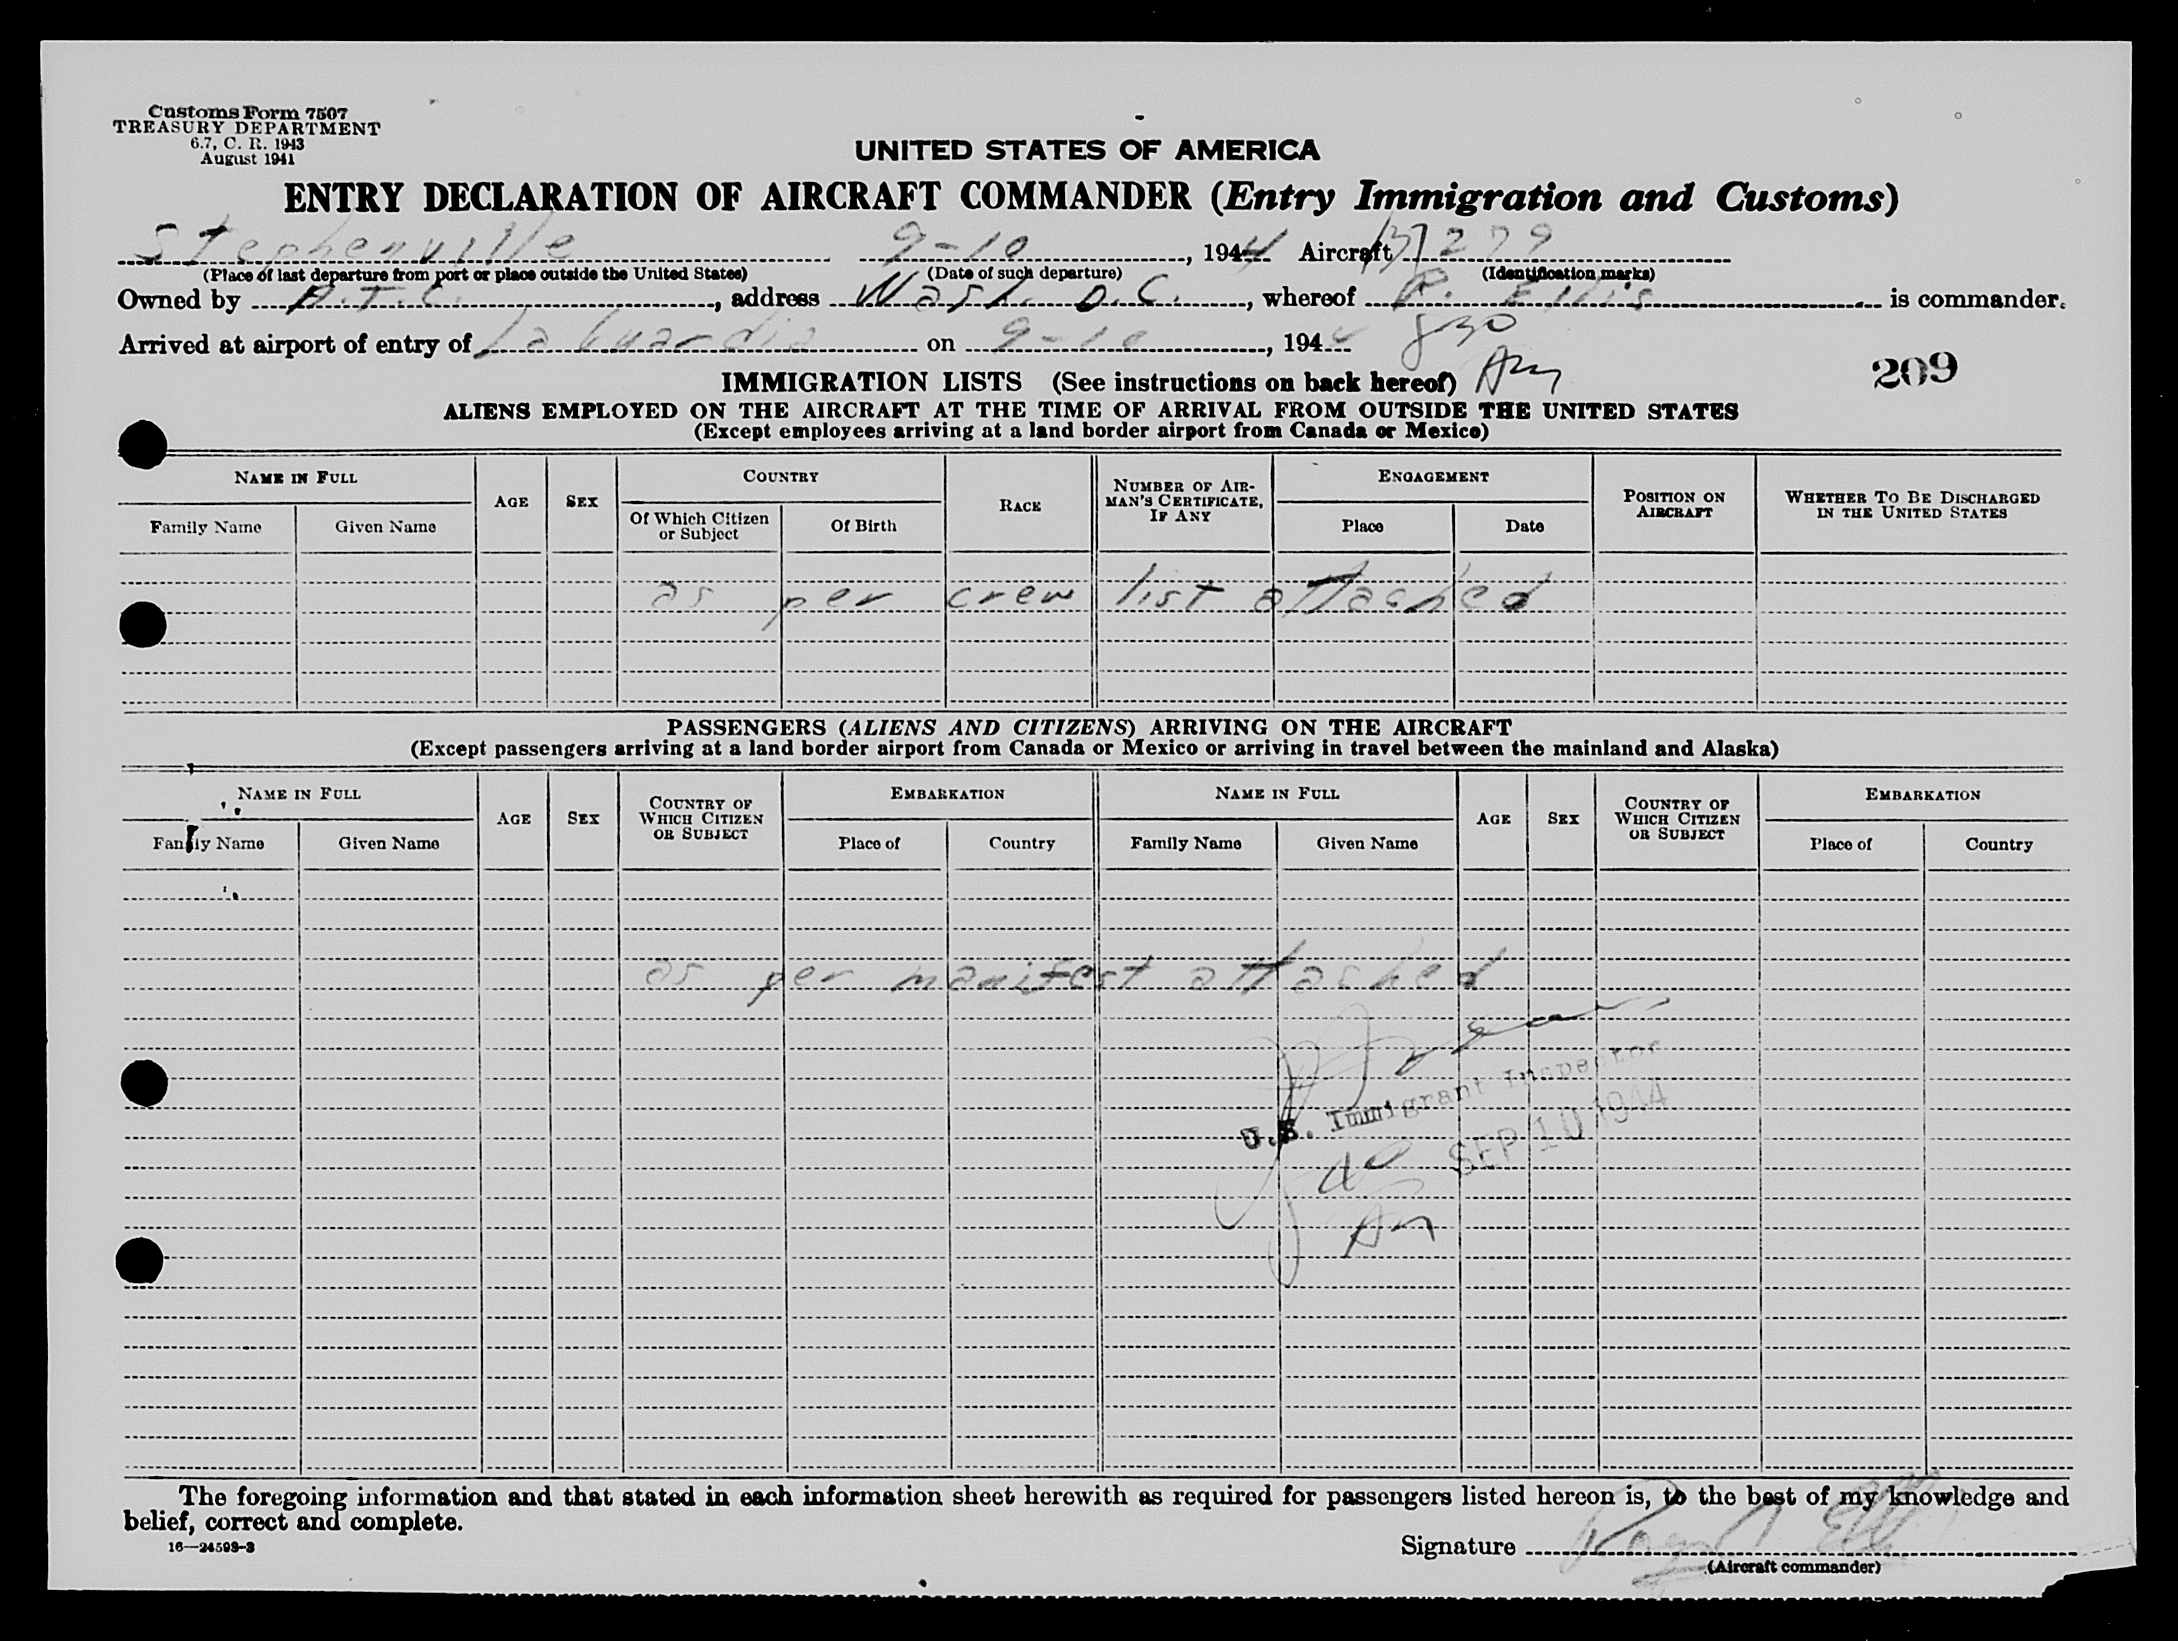 Customs Form 7507
TREASURY DEPARTMENT
6.7, C. R. 1943
August 1941
UNITED STATES OF AMERICA
ENTRY DECLARATION OF AIRCRAFT COMMANDER (Entry Immigration and Customs)
Stephenville 9-10, 1944 Aircraft 37279
(Place of last departure from port or place outside the United States) (Date of such departure) (Identification marks)
Owned by A.T.C., address Wash. D.C., whereof R. Ellis is commander.
Arrived at airport of entry of La Guardia on 9-10, 1944 830
AM
209
IMMIGRATION LISTS (See instructions on back hereof)
ALIENS EMPLOYED ON THE AIRCRAFT AT THE TIME OF ARRIVAL FROM OUTSIDE THE UNITED STATES
(Except employees arriving at a land border airport from Canada or Mexico)
NAME IN FULL AGE SEX COUNTRY RACE NUMBER OF AIRMAN'S CERTIFICATE, IF ANY ENGAGEMENT POSITION ON AIRCRAFT WHETHER TO BE DISCHARGED IN THE UNITED STATES
Family Name Given Name Of Which Citizen or Subject Of Birth Place Date
as per crew list attached
PASSENGERS (ALIENS AND CITIZENS) ARRIVING ON THE AIRCRAFT
(Except passengers arriving at a land border airport from Canada or Mexico or arriving in travel between the mainland and Alaska)
NAME IN FULL AGE SEX COUNTRY OF WHICH CITIZEN OR SUBJECT EMBARKATION NAME IN FULL AGE SEX COUNTRY OF WHICH CITIZEN OR SUBJECT EMBARKATION
Family Name Given Name Place of Country Family Name Given Name Place of Country
as per manifest attached
U.S. Immigrant Inspector
SEP 10 1944
AM
The foregoing information and that stated in each information sheet herewith as required for passengers listed hereon is, to the best of my knowledge and
belief, correct and complete.
16—24593-3
Signature
(Aircraft commander)